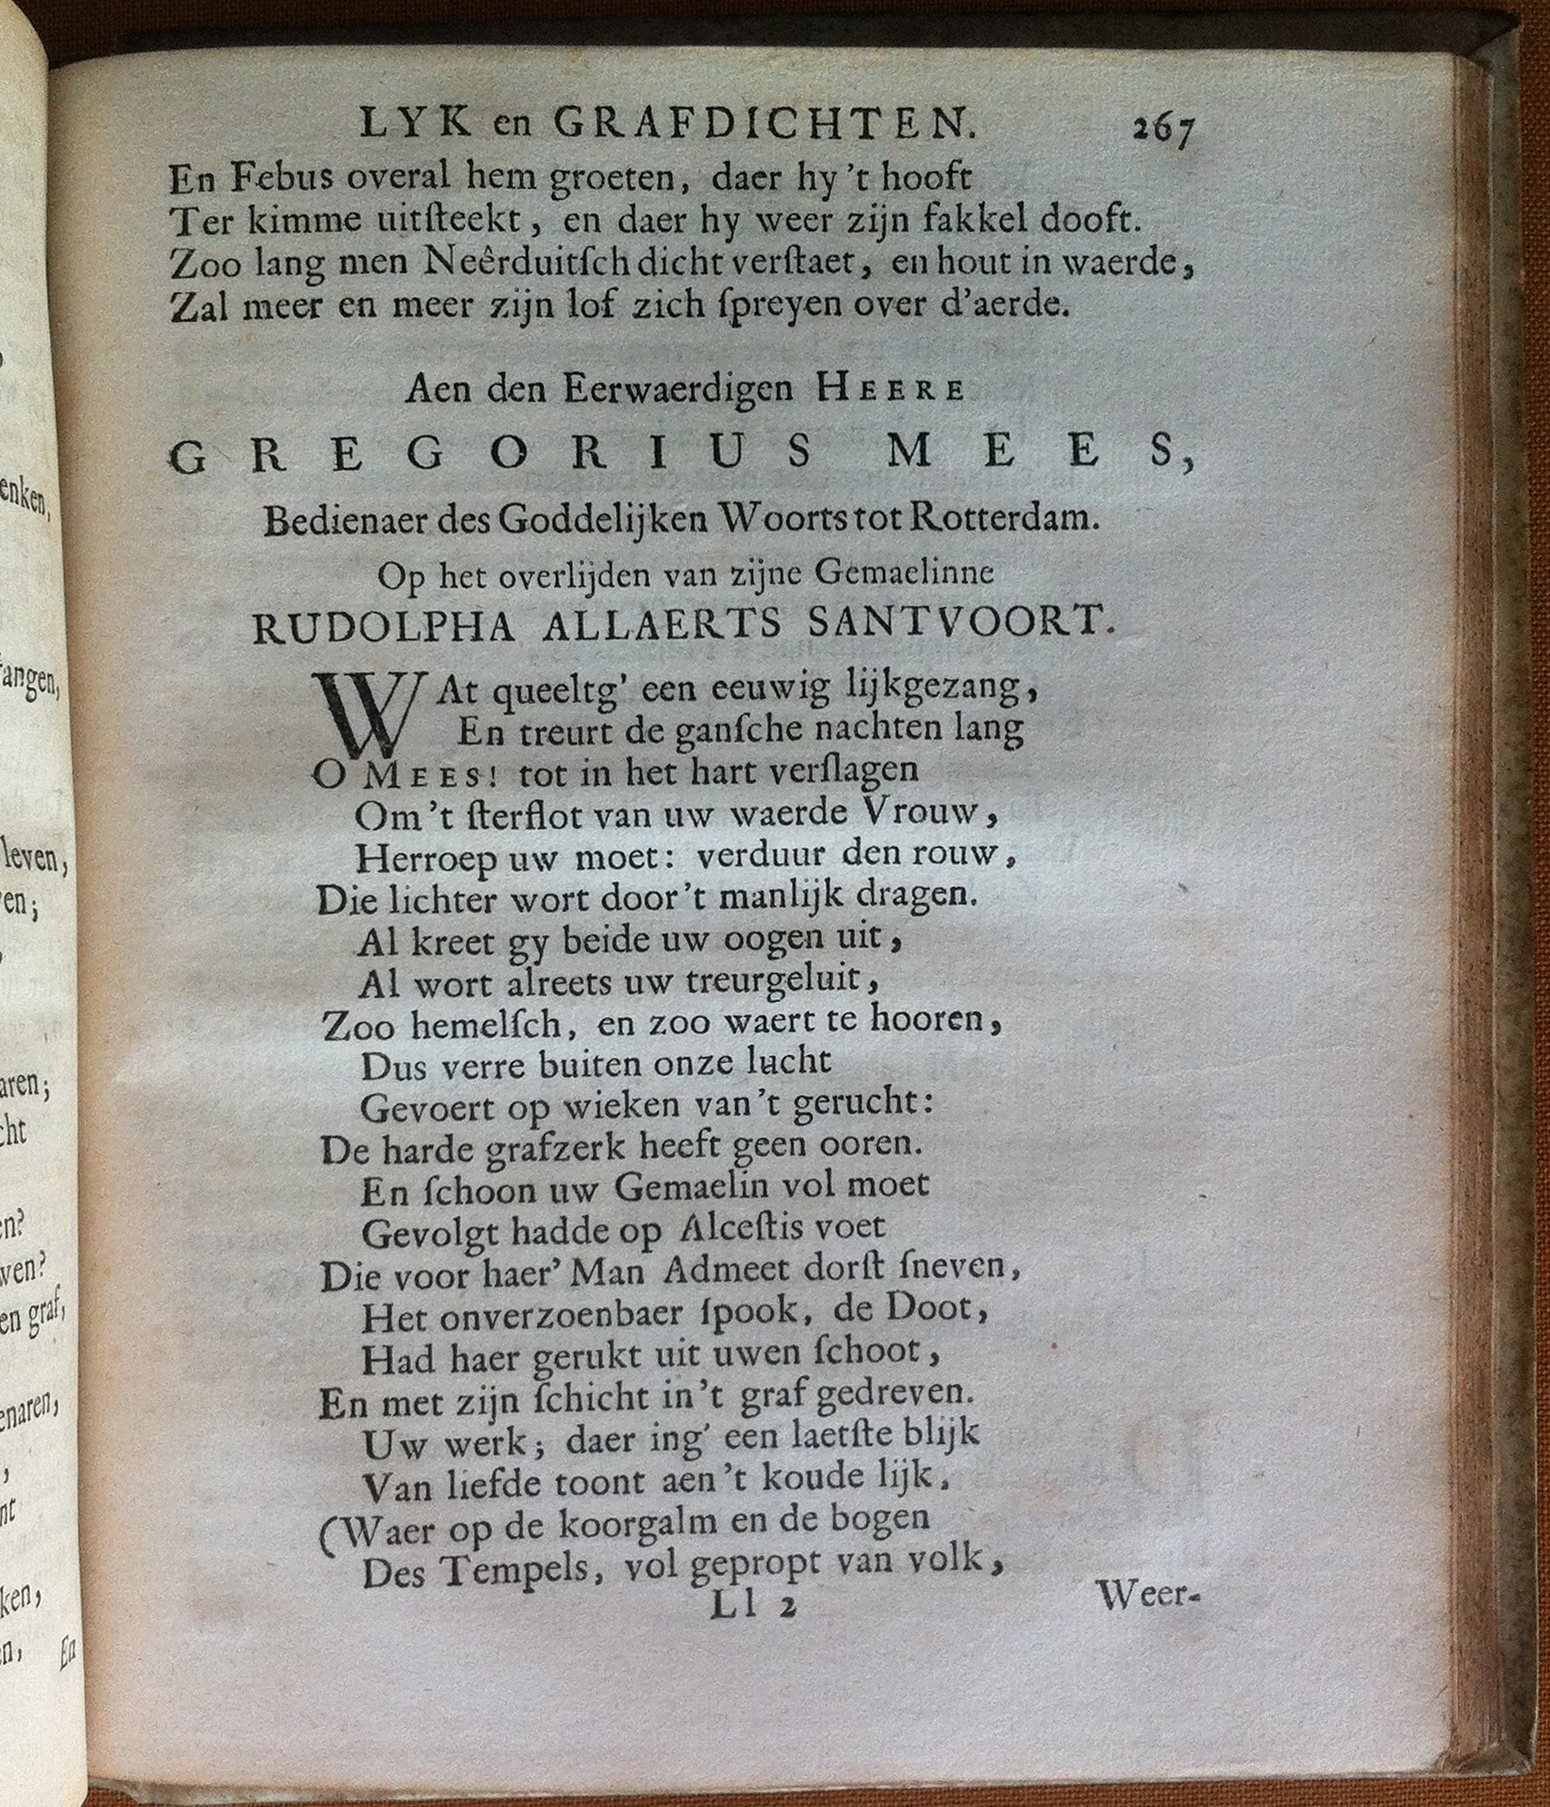 enken,
angen,
leven,
en;
aren;
cht
en?
ven?
en graf,
enaren,
,
nt
ken,
n,
En
LYK en GRAFDICHTEN. 267
En Febus overal hem groeten, daer hy 't hooft
Ter kimme uitſteekt, en daer hy weer zijn fakkel dooft.
Zoo lang men Neêrduitſch dicht verſtaet, en hout in waerde,
Zal meer en meer zijn lof zich ſpreyen over d'aerde.
Aen den Eerwaerdigen HEERE
GREGORIUS MEES,
Bedienaer des Goddelijken Woorts tot Rotterdam.
Op het overlijden van zijne Gemaelinne
RUDOLPHA ALLAERTS SANTVOORT.
WAt queeltg' een eeuwig lijkgezang,
En treurt de ganſche nachten lang
O MEES! tot in het hart verſlagen
Om 't ſterflot van uw waerde Vrouw,
Herroep uw moet: verduur den rouw,
Die lichter wort door 't manlijk dragen.
Al kreet gy beide uw oogen uit,
Al wort alreets uw treurgeluit,
Zoo hemelſch, en zoo waert te hooren,
Dus verre buiten onze lucht
Gevoert op wieken van 't gerucht:
De harde grafzerk heeft geen ooren.
En ſchoon uw Gemaelin vol moet
Gevolgt hadde op Alceſtis voet
Die voor haer' Man Admeet dorſt ſneven,
Het onverzoenbaer ſpook, de Doot,
Had haer gerukt uit uwen ſchoot,
En met zijn ſchicht in 't graf gedreven.
Uw werk; daer ing' een laetſte blijk
Van liefde toont aen 't koude lijk,
(Waer op de koorgalm en de bogen
Des Tempels, vol gepropt van volk,
Ll 2 Weer-